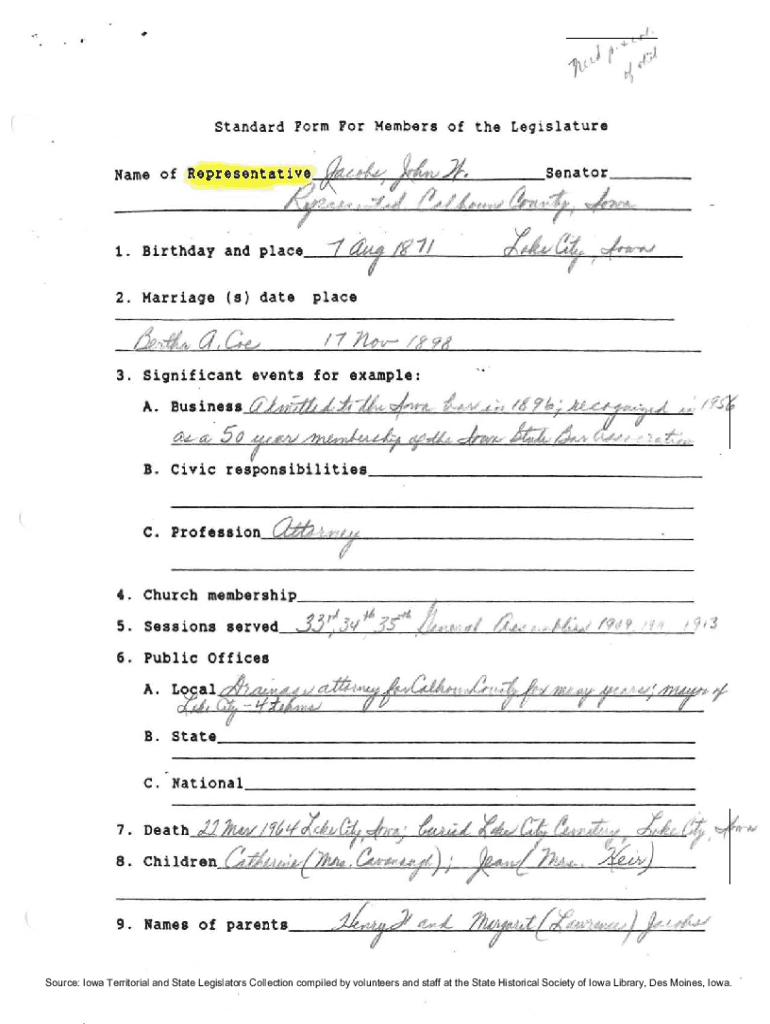 Need p
of
Standard Form For Members of the Legislature
Name of Representative Jacobs, John W. Senator
Represented Calhoun County, Iowa
1. Birthday and place 7 Aug 1871 Lake City, Iowa
2. Marriage (s) date place
Bertha A. Coe 17 Nov 1898
3. Significant events for example:
A. Business Admitted to the Iowa bar in 1896; recognized in 1956
as a 50 year membership of the Iowa State Bar Association
B. Civic responsibilities
C. Profession Attorney
4. Church membership
5. Sessions served 33rd, 34th, 35th General Assemblies 1909, 1911, 1913
6. Public Offices
A. Local Drainage attorney for Calhoun County for many years; mayor of
Lake City - 4 terms
B. State
C. National
7. Death 22 Mar 1964 Lake City, Iowa; buried Lake City Cemetery, Lake City, Iowa
8. Children Catherine (Mrs. Cavanagh); Jean (Mrs. Heir)
9. Names of parents Henry W and Margaret (Lawrence) Jacobs
Source: Iowa Territorial and State Legislators Collection compiled by volunteers and staff at the State Historical Society of Iowa Library, Des Moines, Iowa.